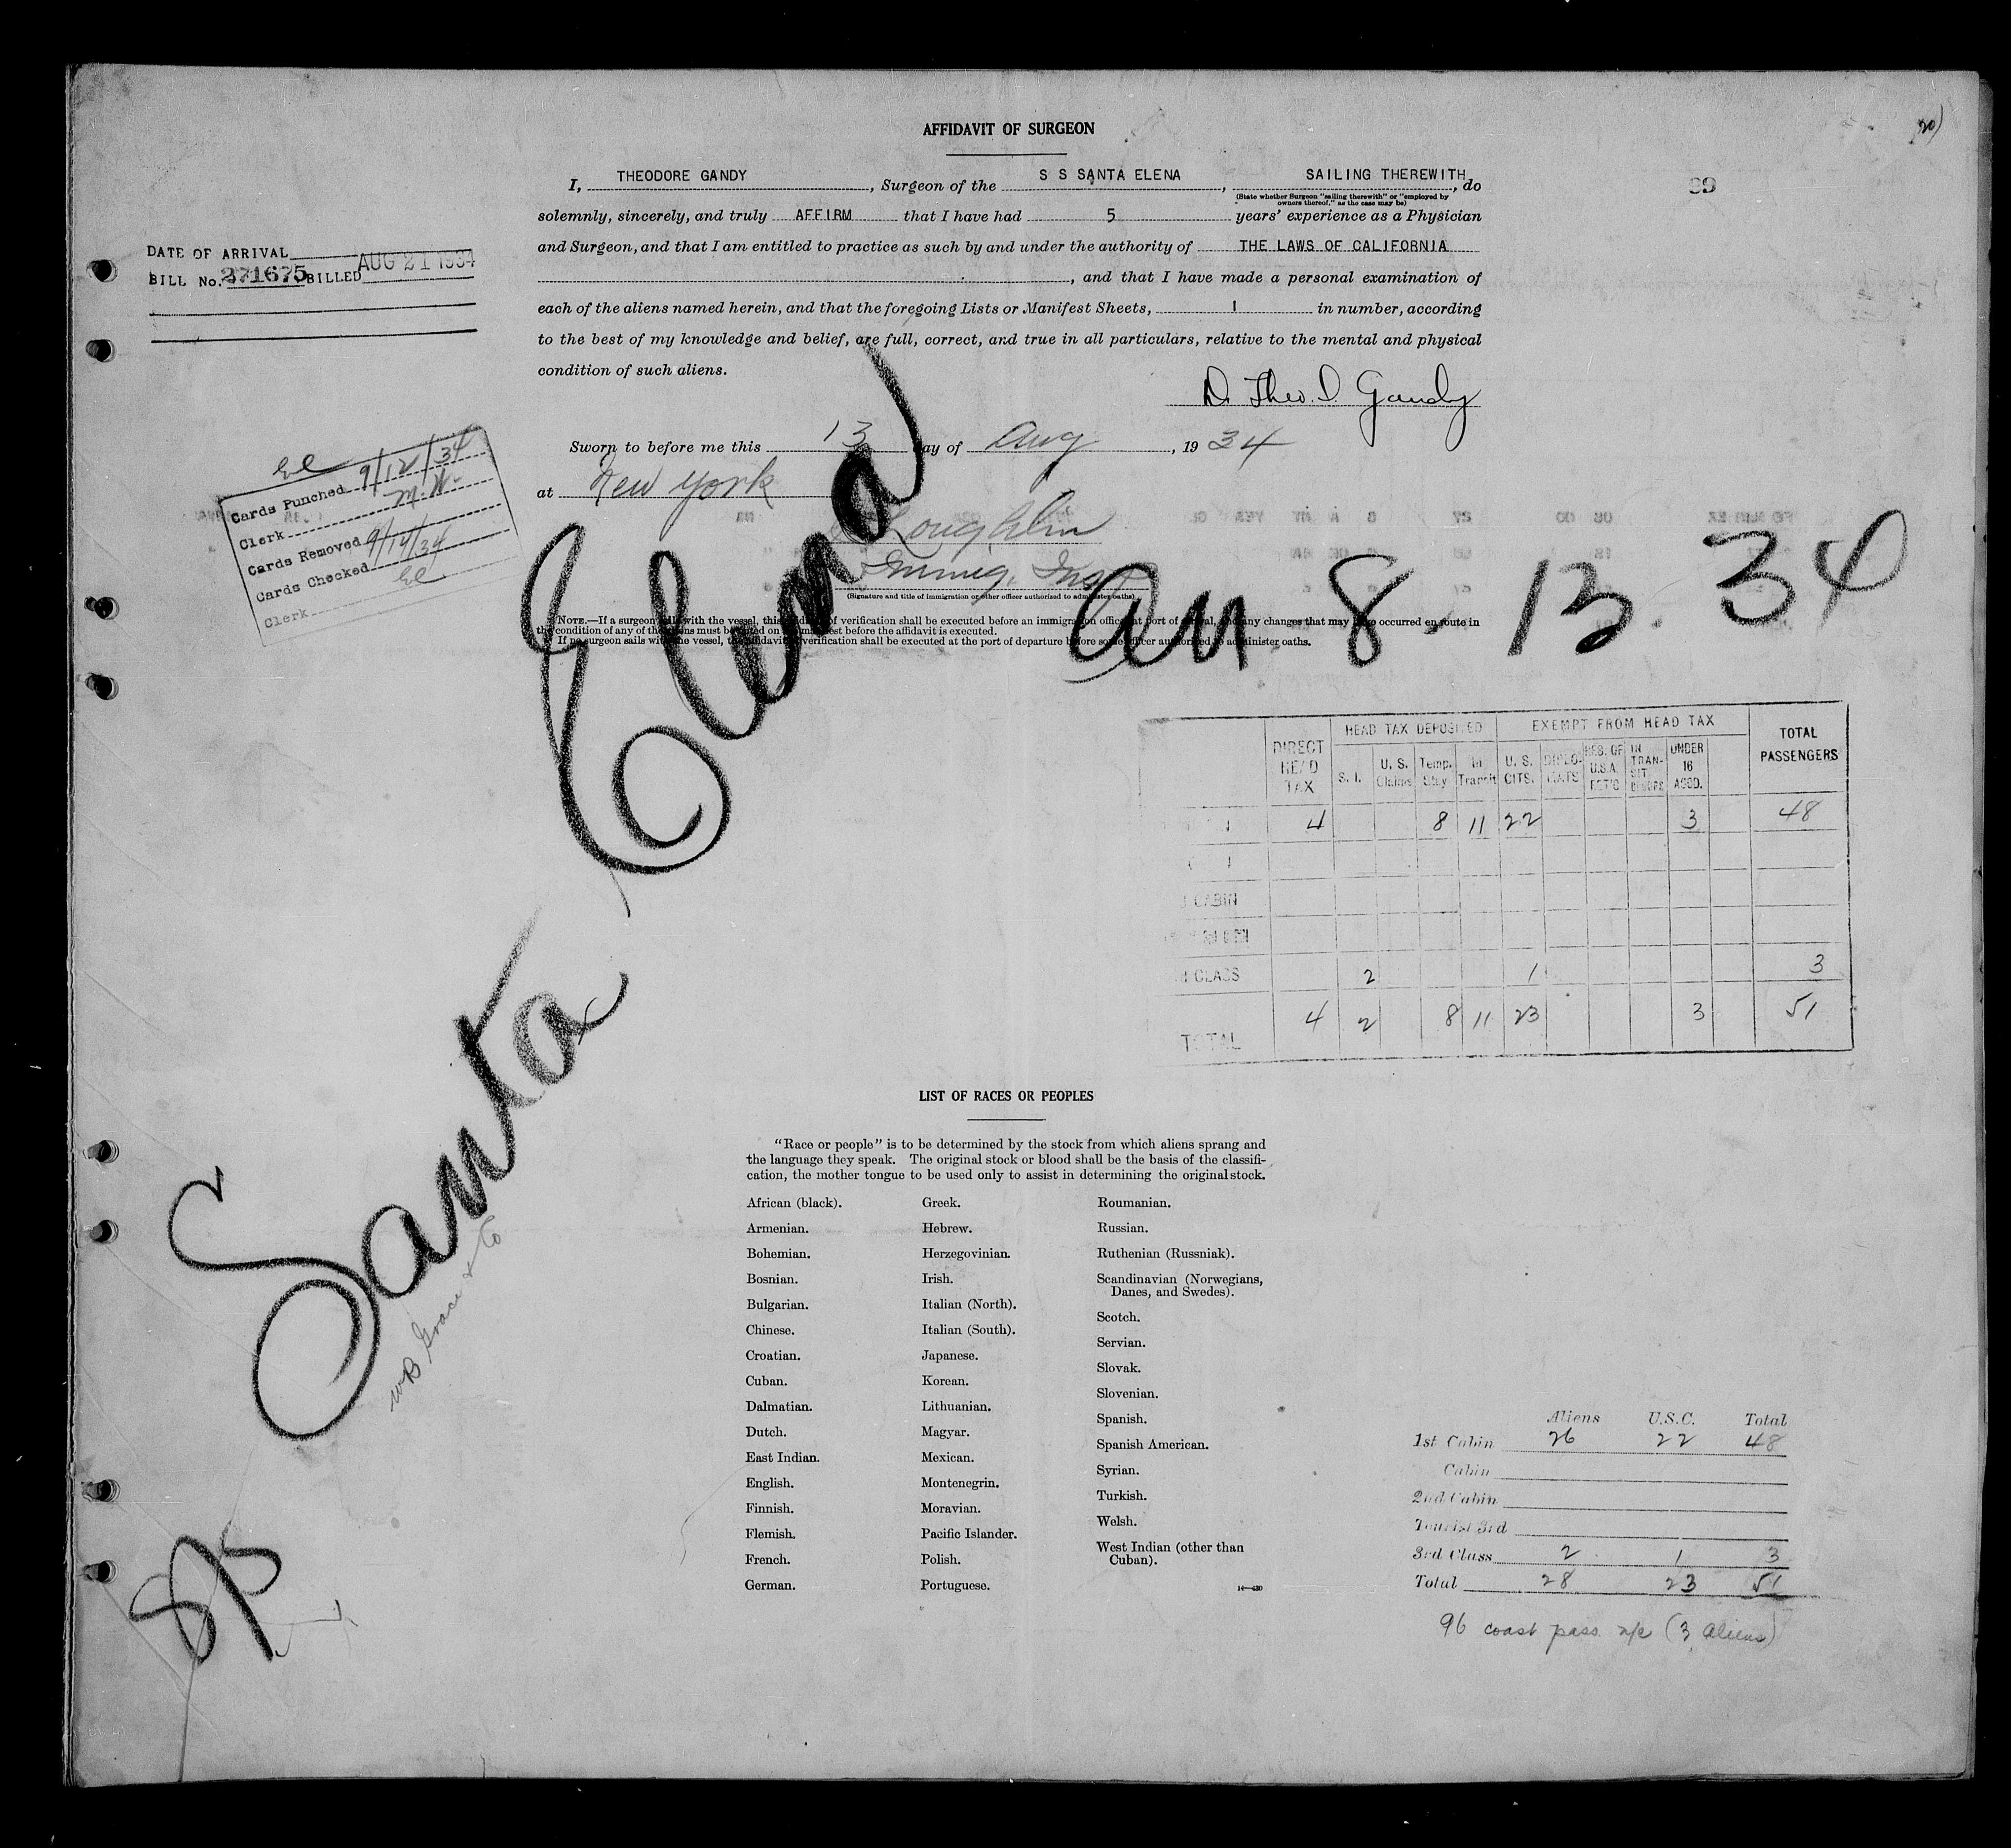 AFFIDAVIT OF SURGEON
20)
I, THEODORE GANDY, Surgeon of the S S SANTA ELENA, SAILING THEREWITH, do
(State whether Surgeon "sailing therewith" or "employed by
owners thereof," as the case may be)
solemnly, sincerely, and truly AFFIRM that I have had 5 years' experience as a Physician
and Surgeon, and that I am entitled to practice as such by and under the authority of THE LAWS OF CALIFORNIA
, and that I have made a personal examination of
each of the aliens named herein, and that the foregoing Lists or Manifest Sheets, 1 in number, according
to the best of my knowledge and belief, are full, correct, and true in all particulars, relative to the mental and physical
condition of such aliens.
DATE OF ARRIVAL
BILL No. 271675 BILLED AUG 21 1934
Theo. Gandy
Sworn to before me this 13 day of Aug, 1934
at New York
Loughlin
Immig. Insp
(Signature and title of immigration or other officer authorized to administer oaths)
NOTE.—If a surgeon sails with the vessel, this affidavit of verification shall be executed before an immigration officer at port of arrival, and any changes that may have occurred en route in
the condition of any of the aliens must be noted on the manifest before the affidavit is executed.
If no surgeon sails with the vessel, the affidavit of verification shall be executed at the port of departure before some officer authorized to administer oaths.
Cards Punched 9/12/34
Clerk M.W.
Cards Removed 9/14/34
Cards Checked
Clerk
Santa Elena
8. 13. 34
DIRECT HEAD TAX
HEAD TAX DEPOSITED
EXEMPT FROM HEAD TAX
TOTAL PASSENGERS
S. I. U. S. Claims Temp. Stay In Transit U. S. CITS. DIPLOMATS RES. OF U.S.A. RET'G IN TRANSIT UNDER 16 ACCD.
4 8 11 22 3 48
CABIN
CLASS 2 1 3
TOTAL 4 2 8 11 23 3 51
Grace & Co
LIST OF RACES OR PEOPLES
"Race or people" is to be determined by the stock from which aliens sprang and
the language they speak. The original stock or blood shall be the basis of the classifi-
cation, the mother tongue to be used only to assist in determining the original stock.
African (black).
Armenian.
Bohemian.
Bosnian.
Bulgarian.
Chinese.
Croatian.
Cuban.
Dalmatian.
Dutch.
East Indian.
English.
Finnish.
Flemish.
French.
German.
Greek.
Hebrew.
Herzegovinian.
Irish.
Italian (North).
Italian (South).
Japanese.
Korean.
Lithuanian.
Magyar.
Mexican.
Montenegrin.
Moravian.
Pacific Islander.
Polish.
Portuguese.
Roumanian.
Russian.
Ruthenian (Russniak).
Scandinavian (Norwegians,
Danes, and Swedes).
Scotch.
Servian.
Slovak.
Slovenian.
Spanish.
Spanish American.
Syrian.
Turkish.
Welsh.
West Indian (other than
Cuban).
Aliens U.S.C. Total
1st Cabin 26 22 48
Cabin
2nd Cabin
Tourist 3rd
3rd Class 2 1 3
Total 28 23 51
96 coast pass. (3 aliens)